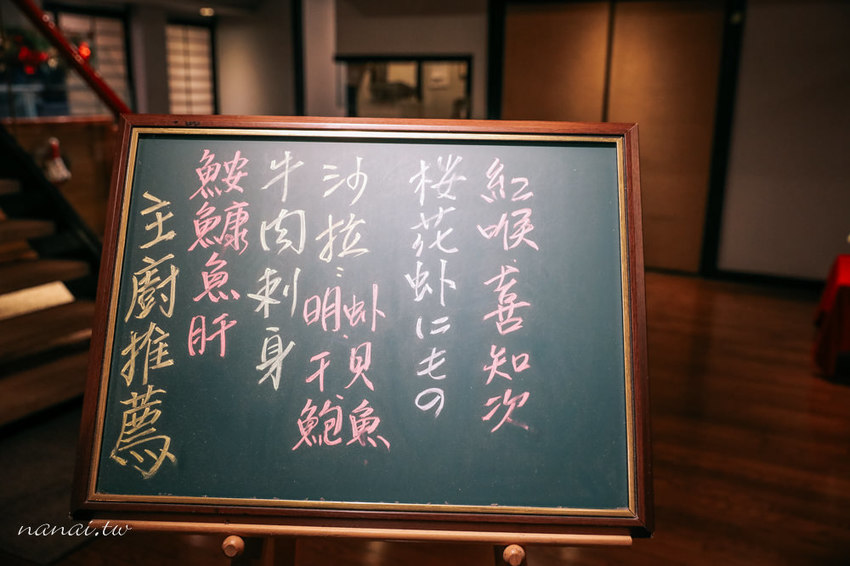 紅喉.喜知次
桜花虾にもの
沙拉:明虾.干貝.鮑魚
牛肉刺身
鮟鱇魚肝
主廚推薦
nanai.tw